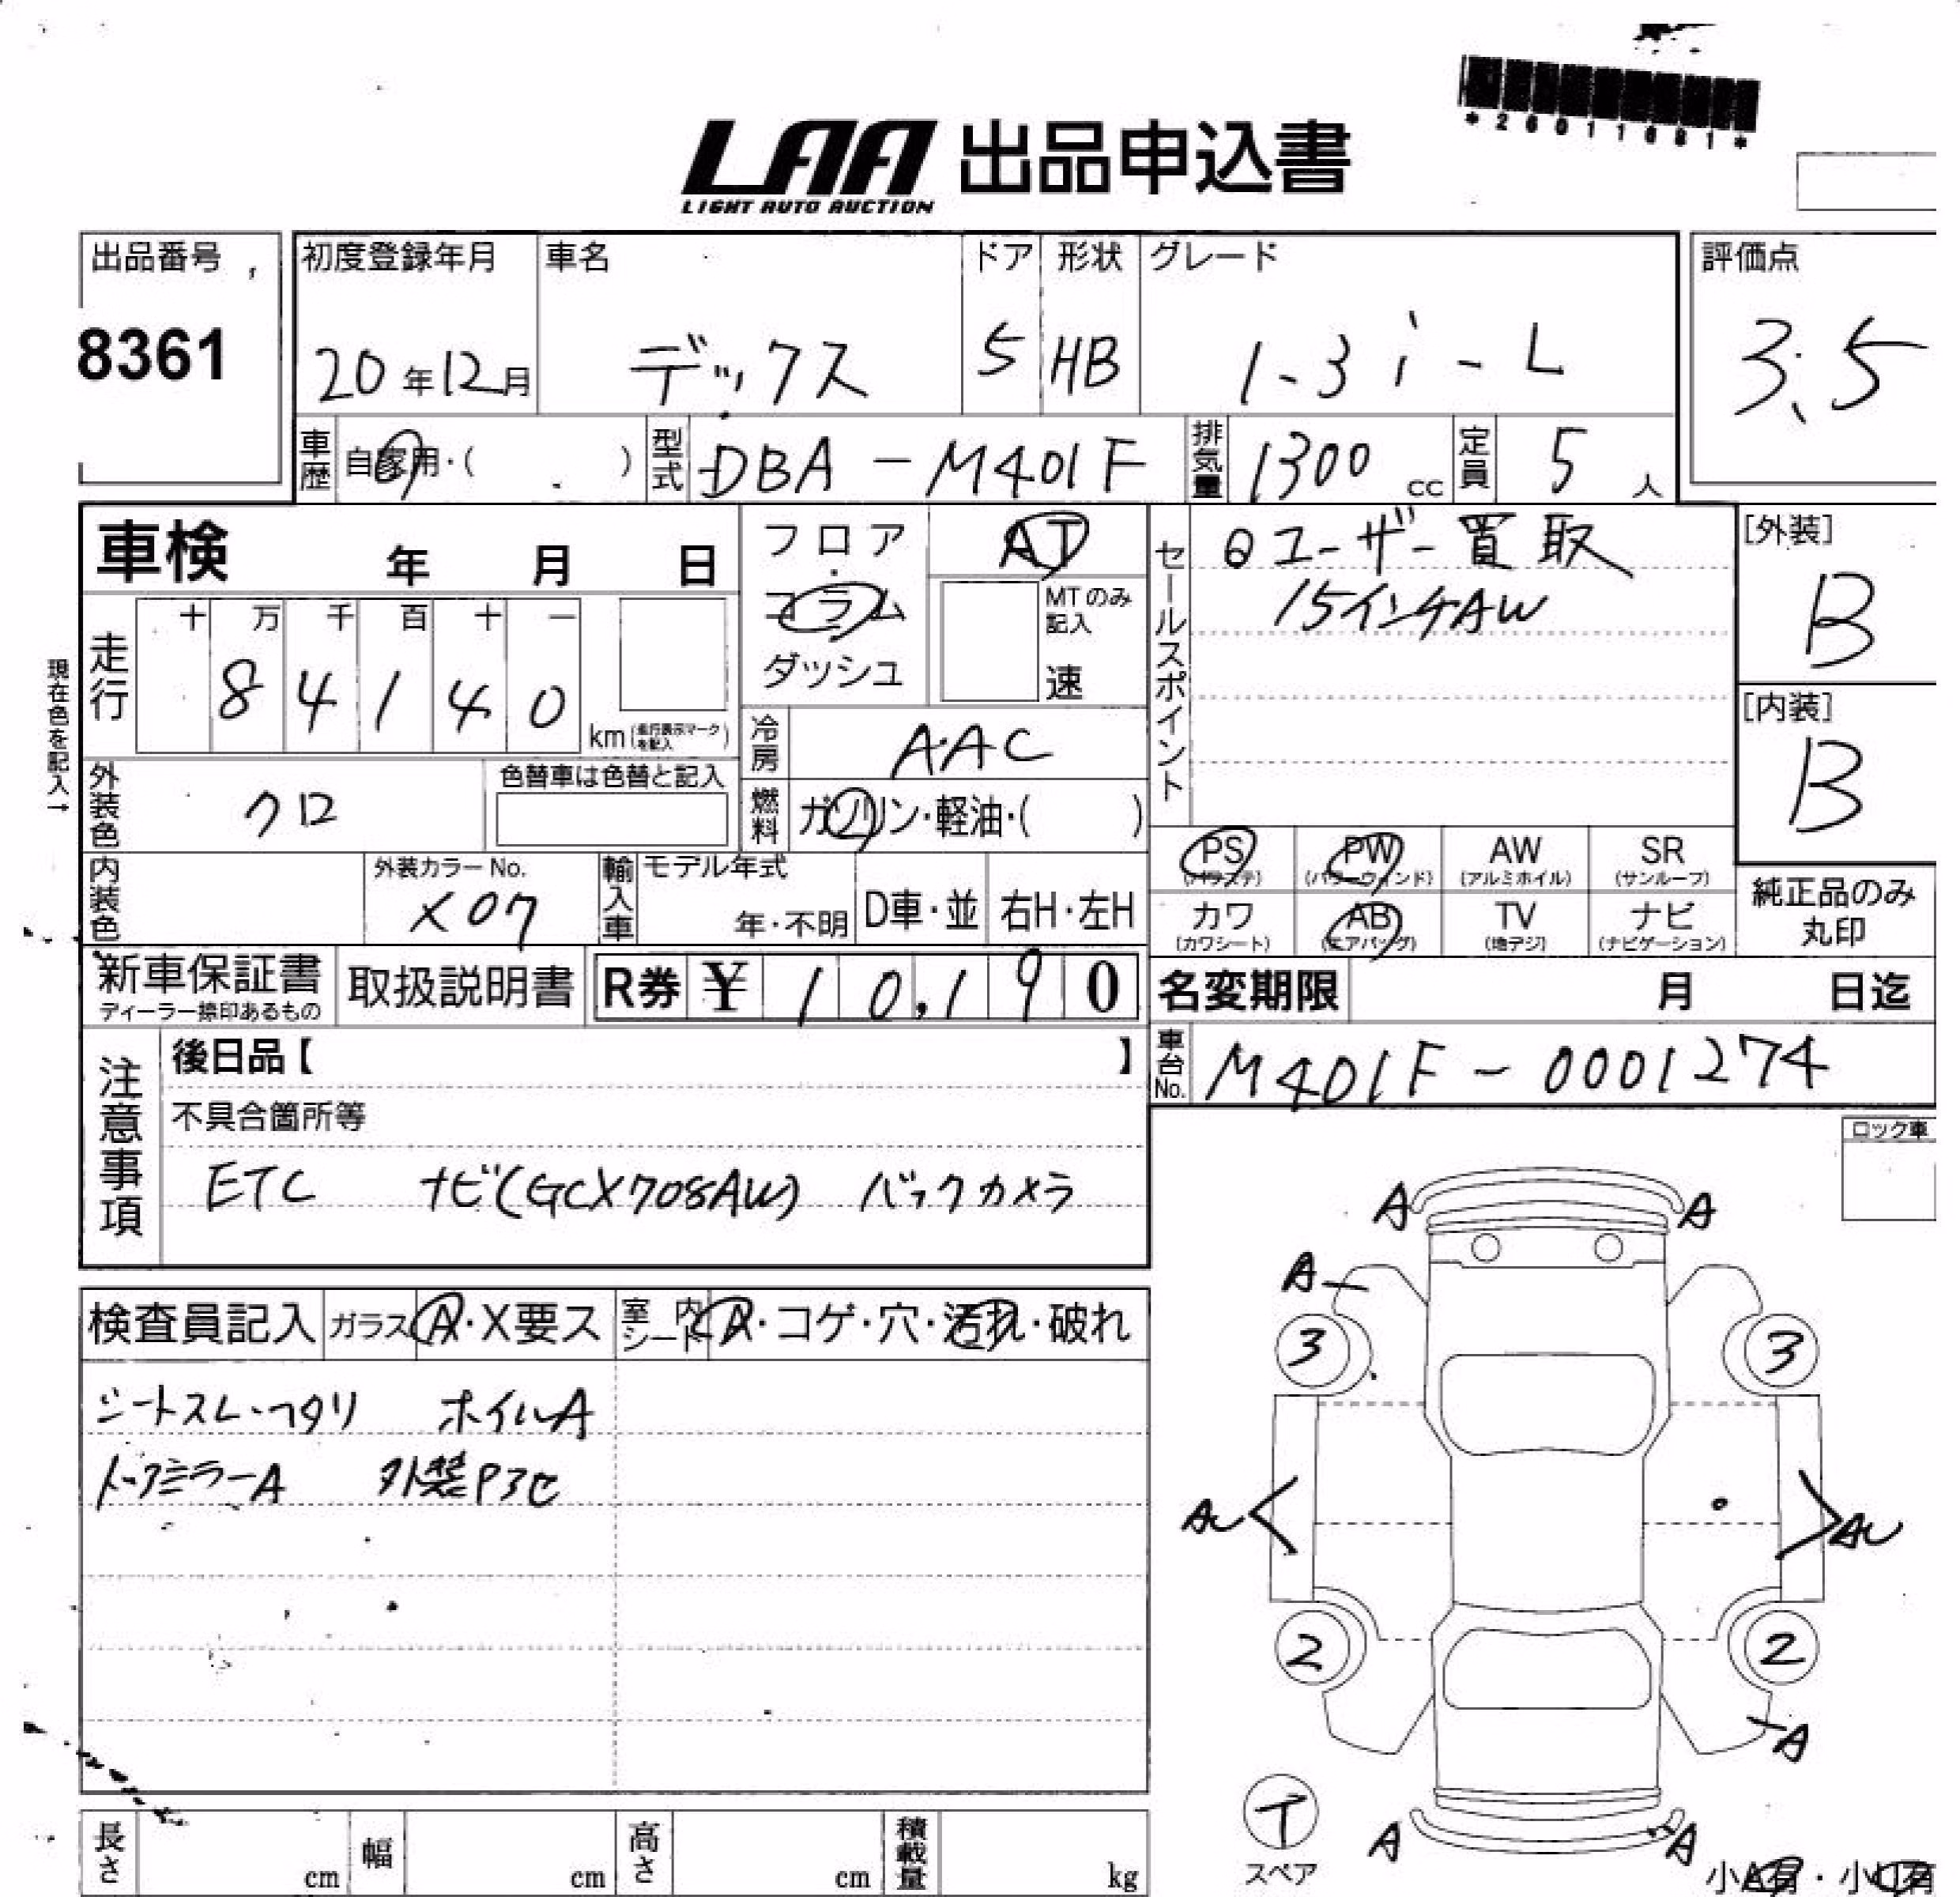 *26011681*
LAA 出品申込書
LIGHT AUTO AUCTION
出品番号
8361
初度登録年月
20年12月
車名
デックス
ドア
5
形状
HB
グレード
1-3 i - L
評価点
3.5
車歴 自家用・( )
型式 DBA-M401F
排気量 1300 cc
定員 5 人
車検 年 月 日
現在色を記入→
走行
十 万 千 百 十 一
8 4 1 4 0
km(走行表示マークを記入)
フロア・コラム
ダッシュ
AT
MTのみ記入
速
冷房 AAC
燃料 ガソリン・軽油・( )
セールスポイント
ユーザー買取
15インチAW
[外装]
B
[内装]
B
外装色 クロ
色替車は色替と記入
内装色
外装カラーNo.
X07
輸入車
モデル年式
年・不明
D車・並
右H・左H
PS AW PW SR
(パワステ) (パワーウィンド) (アルミホイル) (サンルーフ)
カワ AB TV ナビ
(カワシート) (エアバッグ) (地デジ) (ナビゲーション)
純正品のみ
丸印
新車保証書
ディーラー捺印あるもの
取扱説明書
R券 ¥ 10,190
名変期限 月 日迄
車台No. M401F-0001274
注意事項
後日品【 】
不具合箇所等
ETC ナビ(GCX708AW) バックカメラ
ロック車
検査員記入 ガラス A・X要ス 室内シート A・コゲ・穴・汚れ・破れ
シートスレ・ヘタリ ホイルA
ドアミラーA 外装P3セ
A A
A
3 3
AU AU
2 2
A
T
スペア
A A
小A有・小U有
長さ cm 幅 cm 高さ cm 積載量 kg